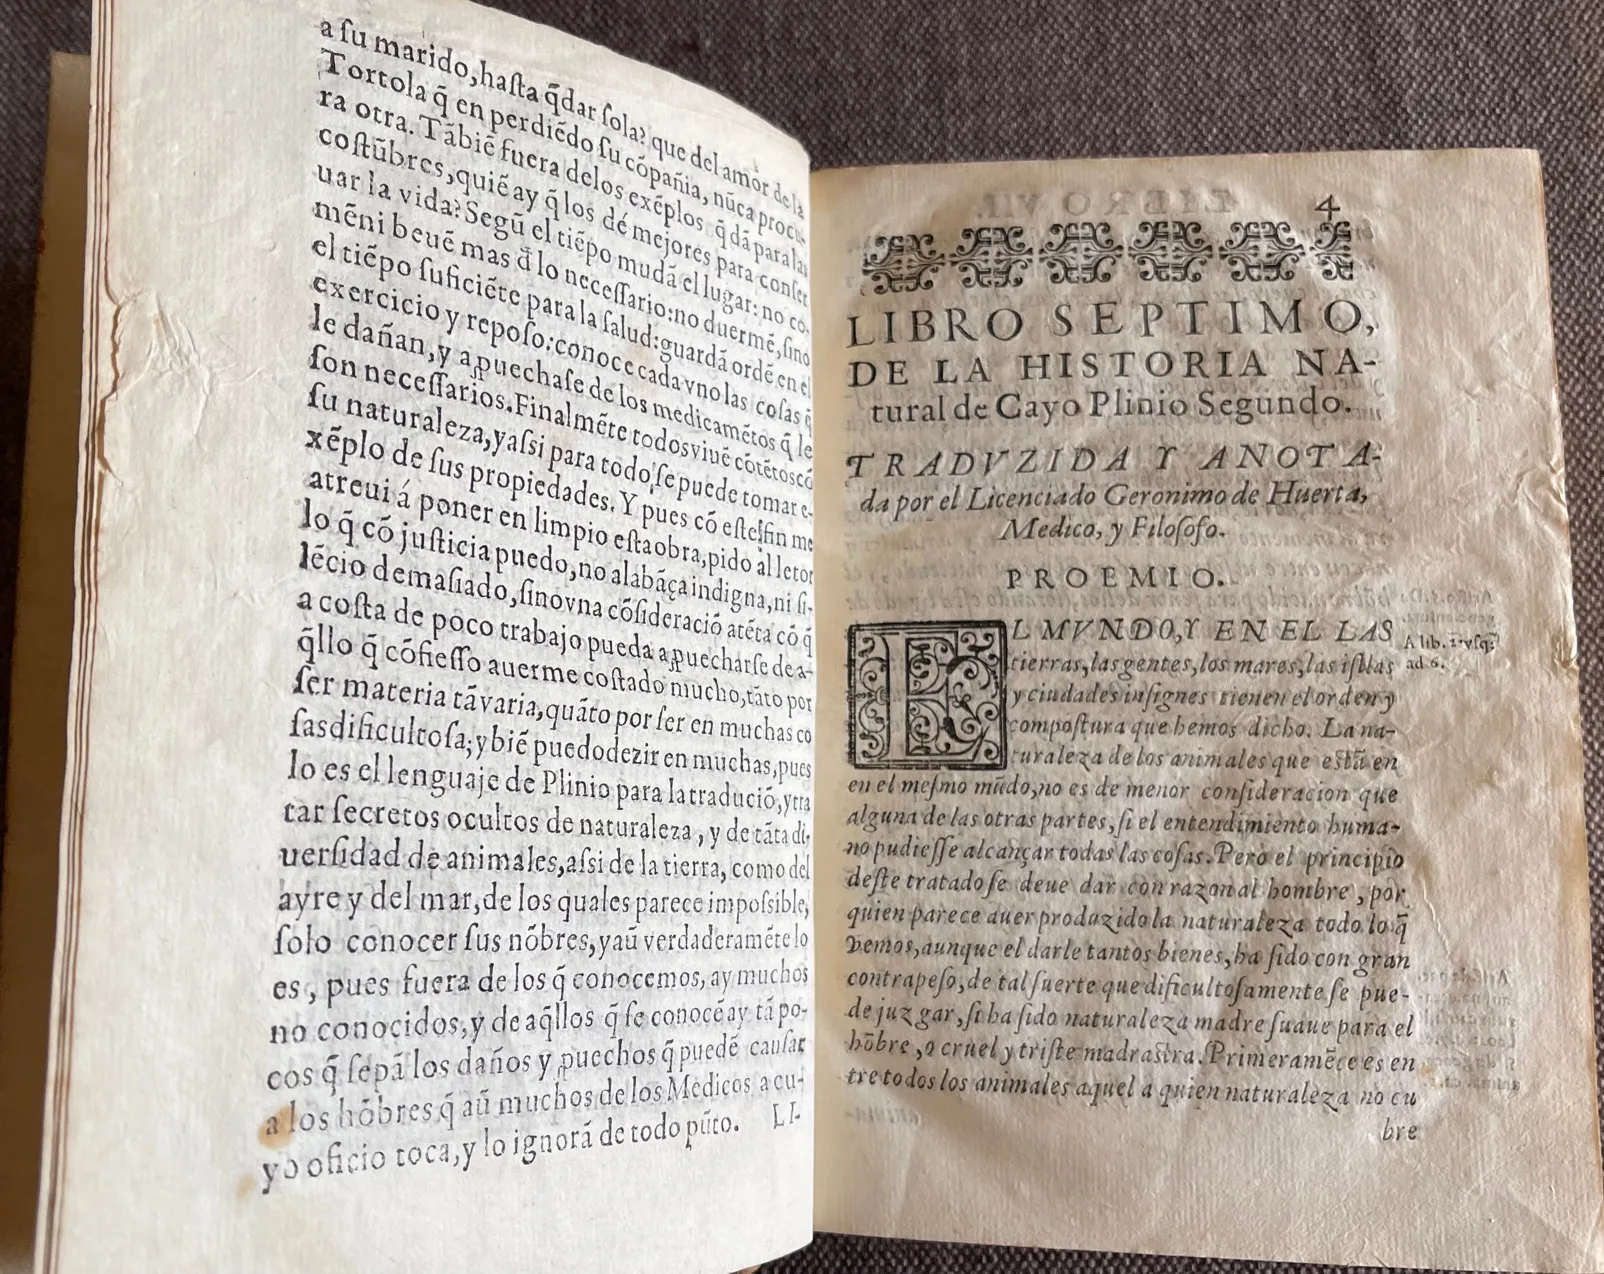 a ſu marido, haſta q̃dar ſola? que del amor de la
Tortola q̃ en perdiẽdo ſu cõpañia, nũca procu-
ra otra. Tãbiẽ fuera delos exẽplos q̃ dã para las
coſtũbres, quiẽ ay q̃ los dẽ mejores para conſer
uar la vida? Segũ el tiẽpo mudã el lugar: no co-
mẽ ni beuẽ mas d̃ lo neceſſario: no duermẽ, ſino
el tiẽpo ſuficiẽte para la ſalud: guardã ordẽ en el
exercicio y repoſo: conoce cada vno las coſas q̃
le dañan, y apuechaſe de los medicamẽtos q̃ le
ſon neceſſarios. Finalmẽte todos viuẽ cõtẽtos cõ
ſu naturaleza, y aſsi para todo ſe puede tomar e-
xẽplo de ſus propiedades. Y pues cõ eſte fin me
atreui á poner en limpio eſta obra, pido al letor
lo q̃ cõ juſticia puedo, no alabãça indigna, ni ſi-
lẽcio demaſiado, ſino vna cõſideraciõ atẽta cõ q̃
a coſta de poco trabajo pueda apuecharſe de a-
q̃llo q̃ cõfieſſo auerme coſtado mucho, tãto por
ſer materia tã varia, quãto por ſer en muchas co
ſas dificultoſa; y biẽ puedo dezir en muchas, pues
lo es el lenguaje de Plinio para la traduciõ, y tra
tar ſecretos ocultos de naturaleza, y de tãta di-
uerſidad de animales, aſsi de la tierra, como del
ayre y del mar, de los quales parece impoſsible,
ſolo conocer ſus nõbres, y aũ verdaderamẽte lo
es, pues fuera de los q̃ conocemos, ay muchos
no conocidos, y de aq̃llos q̃ ſe conocẽ ay tã po-
cos q̃ ſepã los daños y puechos q̃ puedẽ cauſar
a los hõbres q̃ aũ muchos de los Medicos a cu-
yo oficio toca, y lo ignorã de todo pũto. LI-
4
LIBRO SEPTIMO,
DE LA HISTORIA NA-
tural de Cayo Plinio Segundo.
TRADVZIDA Y ANOTA-
da por el Licenciado Geronimo de Huerta,
Medico, y Filoſofo.
PROEMIO.
EL MVNDO, Y EN EL LAS
tierras, las gentes, los mares, las iſllas
y ciudades inſignes tienen el orden y
compoſtura que hemos dicho. La na-
turaleza de los animales que eſtã en
en el meſmo mũdo, no es de menor conſideracion que
alguna de las otras partes, ſi el entendimiento huma-
no pudieſſe alcançar todas las coſas. Pero el principio
deſte tratado ſe deue dar con razon al hombre, por
quien parece auer produzido la naturaleza todo lo q̃
vemos, aunque el darle tantos bienes, ha ſido con gran
contrapeſo, de tal ſuerte que dificultoſamente ſe pue-
de juzgar, ſi ha ſido naturaleza madre ſuaue para el
hõbre, o cruel y triſte madraſtra. Primeramẽte es en
tre todos los animales aquel a quien naturaleza no cu
bre
A lib. 2. vſq̃
ad 6.